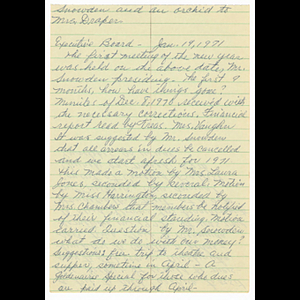 Snowden and an orchid to
Mrs. Draper.
Executive Board - Jan. 19, 1971
The first meeting of the new year
was held on the above date, Mr.
Snowden presiding. At first 9
months, how have things gone?
Minutes of Dec. 8, 1970 received with
the necessary corrections. Financial
report read by Treas. Mrs. Vaughn
It was suggested by Mr. Snowden
that all arrears in dues be cancelled
and we start afresh for 1971
This made a motion by Mrs. Laura
Jones, seconded by several. Motion
by Miss Harrington, seconded by
Mrs. Chambers that members be notified
of their financial standing. Motion
carried. Question by Mr. Snowden
what do we do with our money?
Suggestions: For trip to theatre and
supper, sometime in April - A
Special for those who dues
are paid up through April-